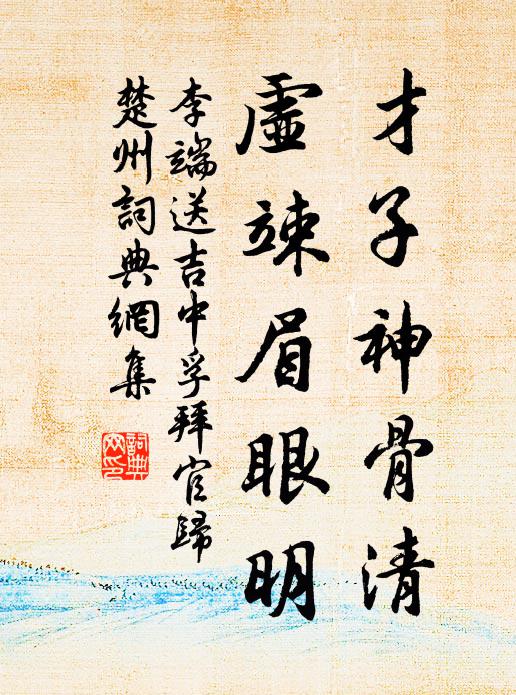 才子神骨清
虛竦眉眼明
李端送吉中孚拜官歸
楚州詞典網集
詞典网印